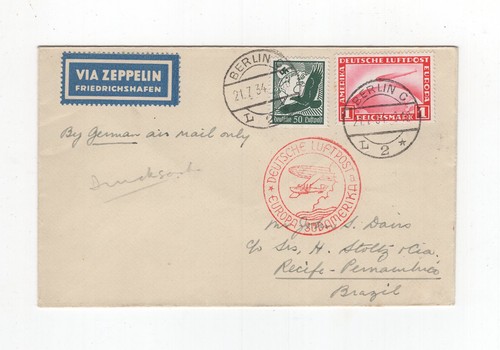 VIA ZEPPELIN
FRIEDRICHSHAFEN
BERLIN C
21.7.34
L 2
50
DEUTSCHE LUFTPOST
AMERIKA
EUROPA
1 REICHSMARK 1
BERLIN C
L 2 *
By German air mail only
Drucksache
* DEUTSCHE LUFTPOST *
EUROPA-SÜDAMERIKA
S. Davis
c/o Srs. H. Stoltz & Cia.
Recife - Pernambuco
Brazil